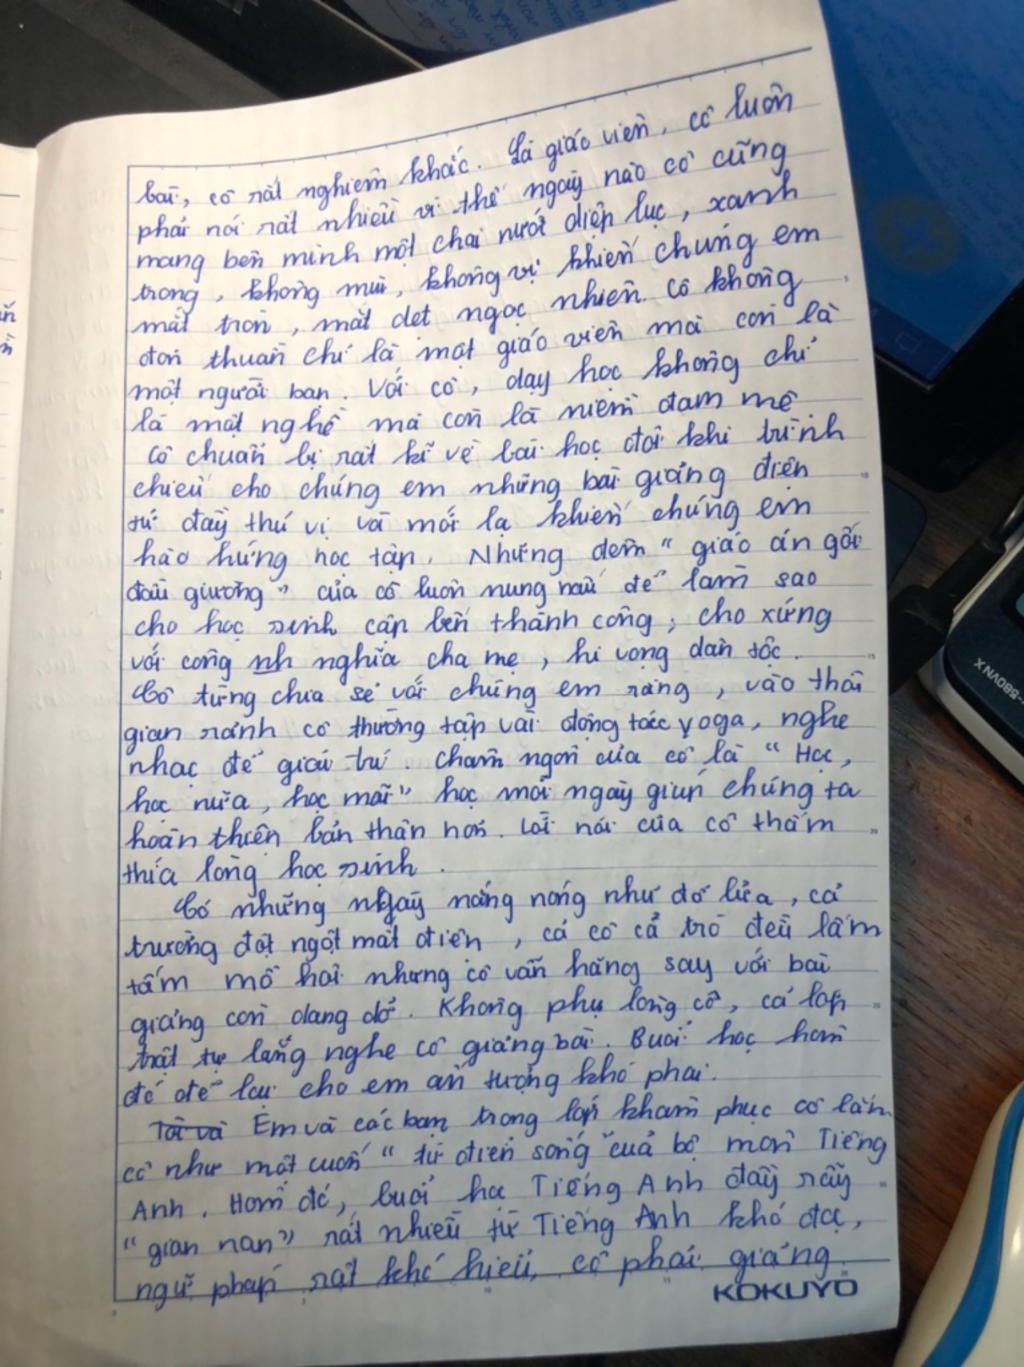 bài, cô rất nghiêm khắc. Là giáo viên, cô luôn
phải nói rất nhiều vì thế ngày nào cô cũng
mang bên mình một chai nước diệp lục, xanh
trong, không mùi, không vị khiến chúng em
mắt tròn, mắt dẹt ngạc nhiên. Cô không
đơn thuần chỉ là một giáo viên mà còn là
một người bạn. Với cô, dạy học không chỉ
là một nghề mà còn là niềm đam mê
cô chuẩn bị rất kĩ về bài học đôi khi trình
chiếu cho chúng em những bài giảng điện
tử đầy thú vị và mới lạ khiến chúng em
hào hứng học tập. Những đêm " giáo án gối
đầu giường " của cô luôn nung nấu để làm sao
cho học sinh cập bến thành công, cho xứng
với công nghĩa cha mẹ, hi vọng dân tộc.
Cô từng chia sẻ với chúng em rằng, vào thời
gian rảnh cô thường tập vài động tác yoga, nghe
nhạc để giải trí. Châm ngôn của cô là " Học,
học nữa, học mãi " học mỗi ngày giúp chúng ta
hoàn thiện bản thân hơn. Lời nói của cô thấm
thía lòng học sinh.
Có những ngày nắng nóng như đổ lửa, cả
trường đột ngột mất điện, cả cô cả trò đều lấm
tấm mồ hôi nhưng cô vẫn hăng say với bài
giảng còn dang dở. Không phụ lòng cô, cả lớp
trật tự lắng nghe cô giảng bài. Buổi học hôm
đó để lại cho em ấn tượng khó phai.
Tôi và Em và các bạn trong lớp khâm phục cô lắm
cô như một cuốn " từ điển sống " của bộ môn Tiếng
Anh. Hôm đó, buổi học Tiếng Anh đầy rẫy
" gian nan " rất nhiều từ Tiếng Anh khó đọc,
ngữ pháp rất khó hiểu, cô phải giảng
KOKUYO